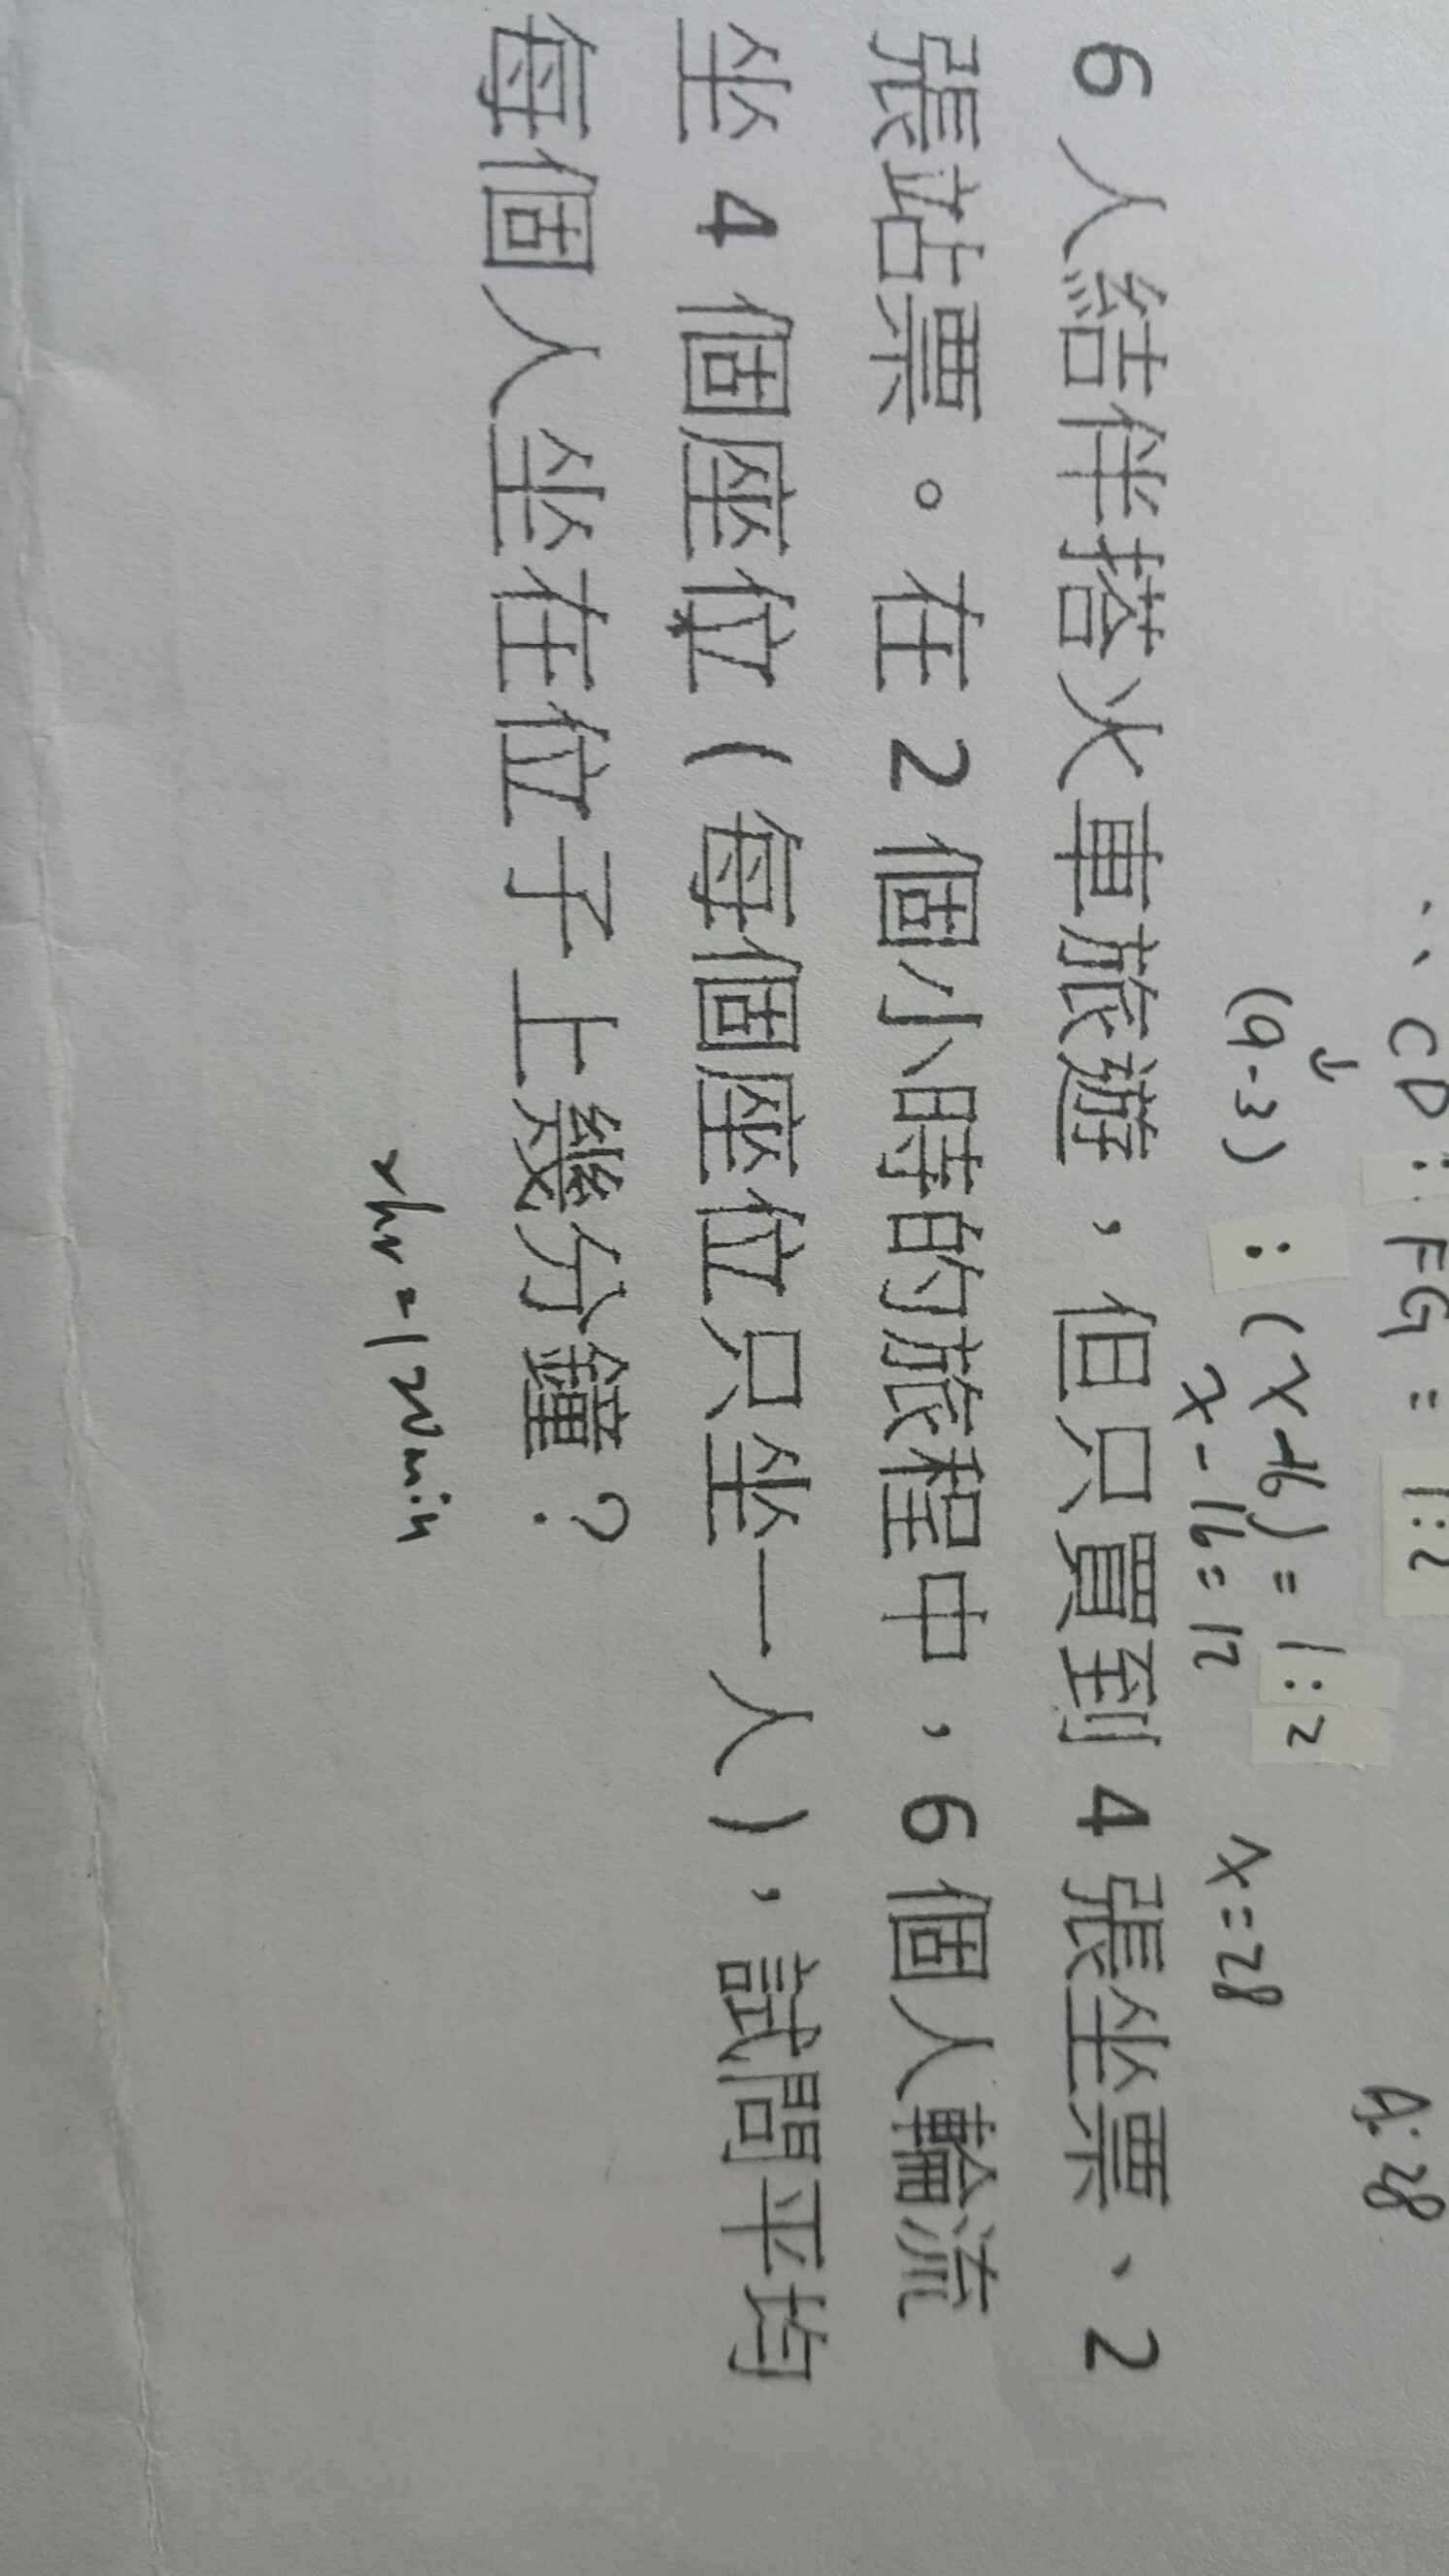 、、CD : FG = 1:2
(9-3) : (x+6) = 1:2
x-16=12
x=28
A:28
6人結伴搭火車旅遊，但只買到4張坐票、2
張站票。在2個小時的旅程中，6個人輪流
坐4個座位（每個座位只坐一人），試問平均
每個人坐在位子上幾分鐘？
2hr=120min